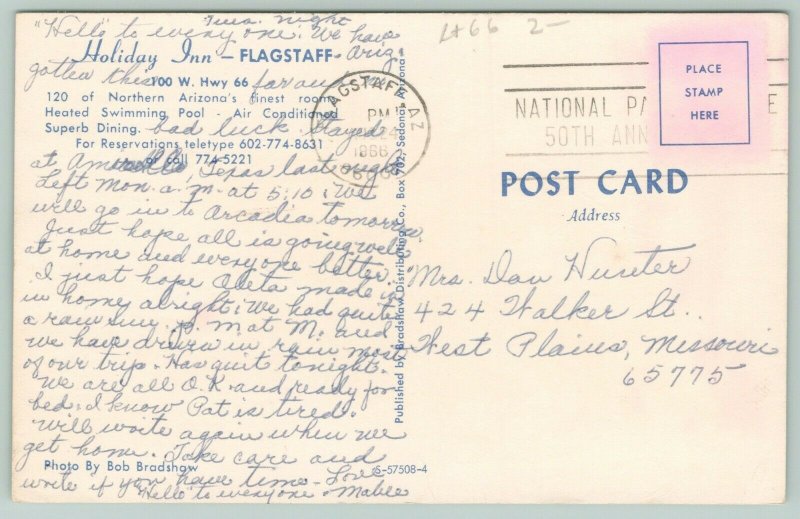 Tues. night
"Hello" to everyone: We have
Holiday Inn - FLAGSTAFF Ariz.
gotten this far and no
100 W. Hwy 66
120 of Northern Arizona's finest rooms
Heated Swimming Pool - Air Conditioned
Superb Dining. bad luck. Stayed
For Reservations teletype 602-774-8631
or call 774-5221
at Amarillo, Texas last night
Left Mon. a.m. at 5:10. We
will go in to Arcadia tomorrow.
Just hope all is going well
at home and everyone better.
I just hope Oleta made it
in home alright. We had quite
a rain Sun. p.m at M. and
we have driven in rain most
of our trip. Has quit tonight.
We are all O.K. and ready for
bed. I know Pat is tired.
Will write again when we
get home. Take care and
Photo By Bob Bradshaw
write if you have time - Love
"Hello" to everyone - Mabel
S-57508-4
Published by Bradshaw Distributing Co., Box 702, Sedona, Arizona
FLAGSTAFF AZ
PM
1966
LH66 2-
NATIONAL PA E
50TH ANN
PLACE
STAMP
HERE
POST CARD
Address
Mrs. Dan Hunter
424 Walker St.
West Plains, Missouri
65775